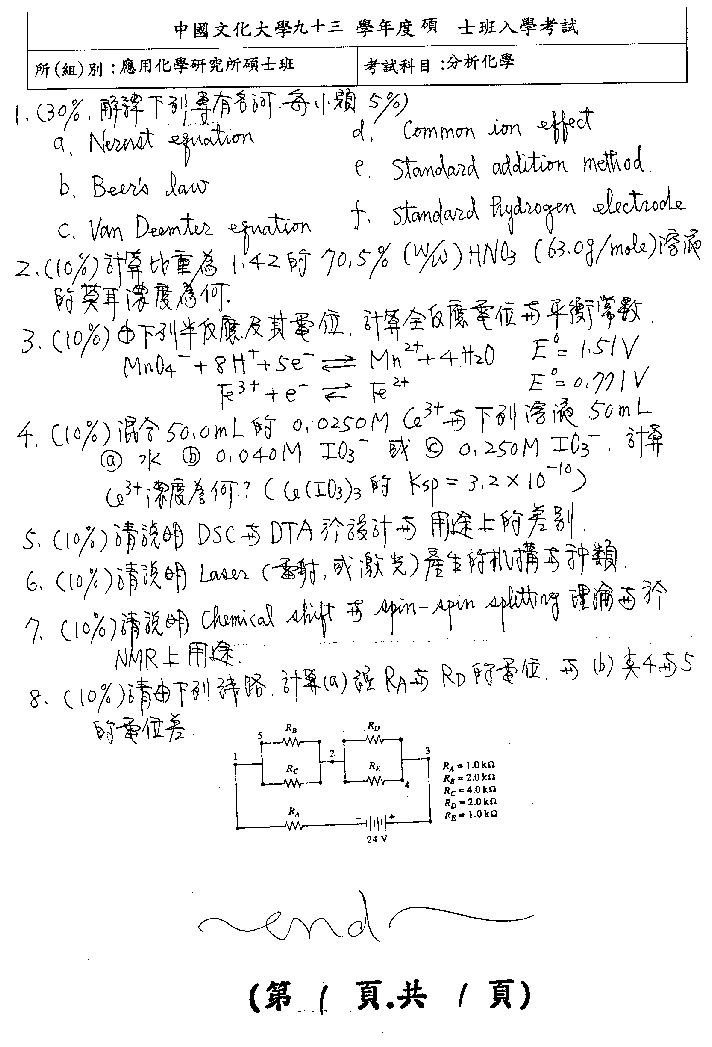 中國文化大學九十三 學年度碩 士班入學考試
所(組)別:應用化學研究所碩士班 考試科目:分析化學
1. (30%, 解釋下列專有名詞, 每小題 5%)
a. Nernst equation d. Common ion effect
b. Beer's law e. Standard addition method.
c. Van Deemter equation f. Standard hydrogen electrode
2. (10%) 計算比重為 1.42 的 70.5% (W/W) HNO3 (63.0g/mole)溶液
的莫耳濃度為何.
3. (10%) 由下列半反應及其電位, 計算全反應電位與平衡常數.
MnO4⁻ + 8H⁺ + 5e⁻ ⇌ Mn²⁺ + 4H2O E° = 1.51V
Fe³⁺ + e⁻ ⇌ Fe²⁺ E° = 0.771V
4. (10%) 混合 50.0mL 的 0.0250M Ce³⁺ 與下列溶液 50mL
ⓐ 水 ⓑ 0.040M IO3⁻ 或 ⓒ 0.250M IO3⁻, 計算
Ce³⁺ 濃度為何? (Ce(IO3)3 的 Ksp = 3.2 × 10⁻¹⁰)
5. (10%) 請說明 DSC 與 DTA 於設計與用途上的差別.
6. (10%) 請說明 Laser (雷射, 或激光) 產生的機構與種類.
7. (10%) 請說明 Chemical shift 與 spin-spin splitting 理論與於
NMR上用途.
8. (10%) 請由下列線路, 計算(a) 經 RA與 RD 的電位, 與 (b) 其4與5
的電位差.
RB RD
5
1 2 3
RC RE
4
RA - +
24 V
RA = 1.0 kΩ
RB = 2.0 kΩ
RC = 4.0 kΩ
RD = 2.0 kΩ
RE = 1.0 kΩ
~end~
(第 1 頁.共 1 頁)